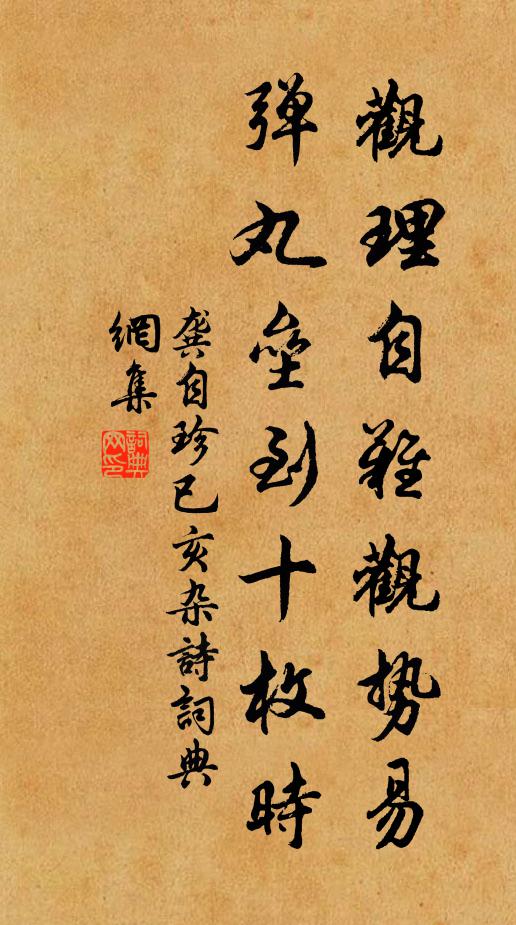 觀理自難觀勢易
弹丸壘到十枚時
龚自珍己亥杂詩詞典
網集
詞典
网印